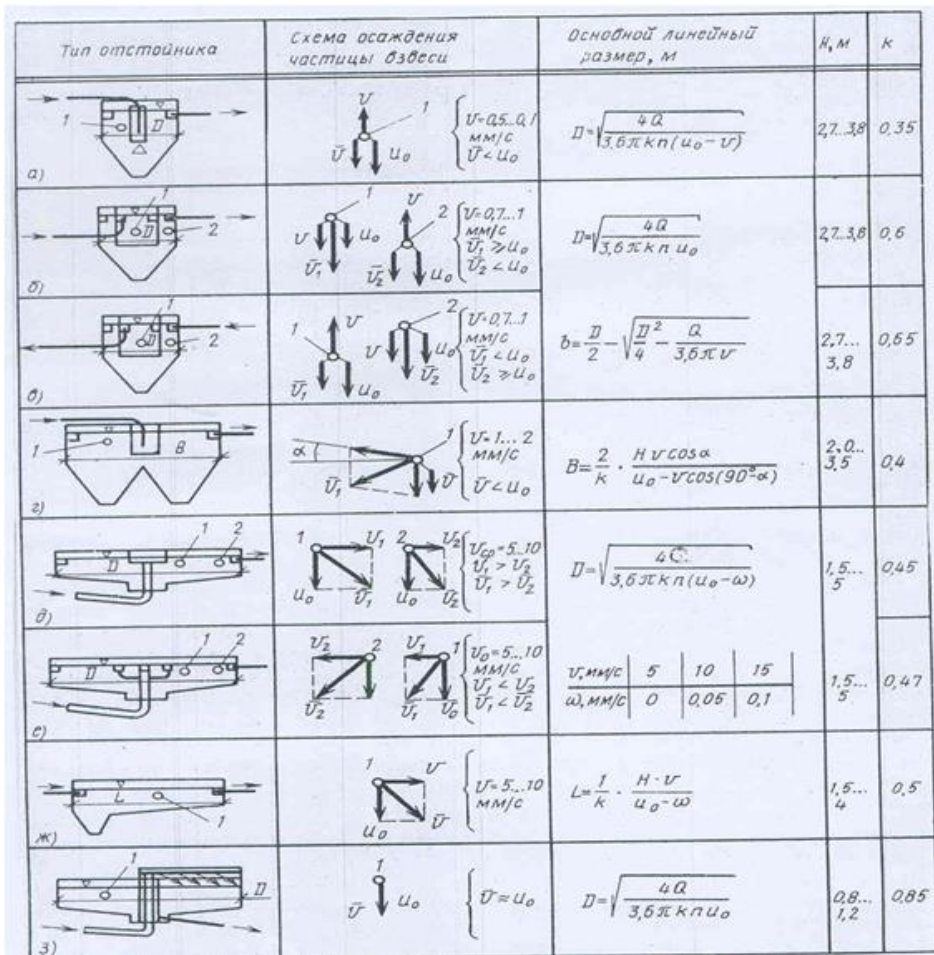 Тип отстойника
Схема осаждения
частицы взвеси
Основной линейный
размер, м
H, м
к
а)
1
D
v
1
v̅
u₀
v=0,5...0,1
мм/с
v̅<u₀
D=√(4Q/(3,6πkn(u₀-v)))
2,7...3,8
0,35
б)
1
D
2
1
v
u₀
v̅₁
v
2
v̅₂
u₀
v=0,7...1
мм/с
v̅₁⩾u₀
v̅₂<u₀
D=√(4Q/(3,6πkn u₀))
2,7...3,8
0,6
в)
1
D
2
1
v
v̅₁
u₀
2
v
u₀
v̅₂
v=0,7...1
мм/с
v̅₁<u₀
v̅₂⩾u₀
b=D/2-√(D²/4-Q/(3,6πv))
2,7...
3,8
0,65
г)
1
B
α
1
v̅₁
v̅
u₀
v=1...2
мм/с
v̅<u₀
B=2/k·(Hvcosα)/(u₀-vcos(90°-α))
2,0...
3,5
0,4
д)
D
1
2
1
v₁
u₀
v̅₁
2
v₂
u₀
v̅₂
vср=5...10
v̅₁>v̅₂
v̅₁>v̅₂
D=√(4Q/(3,6πkn(u₀-ω)))
1,5...
5
0,45
е)
D
1
2
v₂
2
v̅₂
v₁
1
v̅₁
v̅₀
v₀=5...10
мм/с
v̅₁<v̅₂
v̅₁<v̅₂
v, мм/с 5 10 15
ω, мм/с 0 0,05 0,1
1,5...
5
0,47
ж)
L
1
1
v
u₀
v̅
v=5...10
мм/с
L=1/k·(H·v)/(u₀-ω)
1,5...
4
0,5
з)
1
D
1
v̅
u₀
v̅=u₀
D=√(4Q/(3,6πknu₀))
0,8...
1,2
0,85